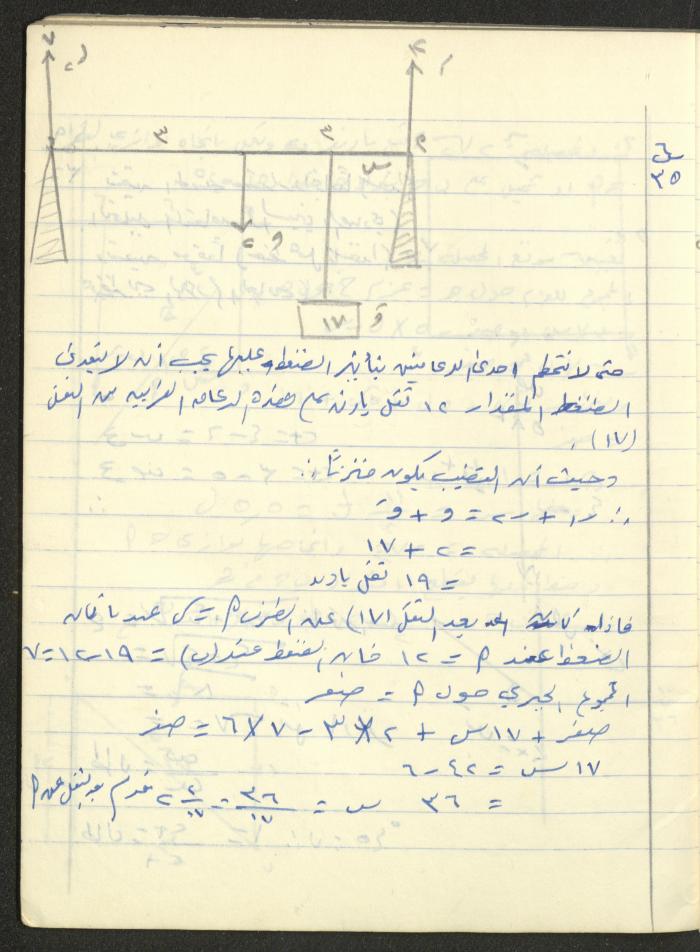 س
٣٥
٧
ر
١٢
ر
٣
٣
س
م
٢
و
١٧
وَ
حتى لا تتحطم احدى الدعامتين بتأثير الضغط عليها يجب أن لا يتعدى
الضغط المقدار ١٢ ثقل باوند مع هذه الدعامة القريبة من الثقل
(١٧) .
وحيث أن القضيب يكون متزنًا :.
∴ ر١ + ر٢ = و + وَ
= ٢ + ١٧
= ١٩ ثقل باوند
فاذا كانت بعد الثقل (١٧) عن الطرف م = س عندما كان
الضغط عند م = ١٢ فان الضغط عند (ب) = ١٩-١٢=٧
المجموع الجبري حول م = صفر
صفر + ١٧س + ٢×٣ - ٧×٦ = صفر
١٧ س = ٤٢ - ٦
= ٣٦ س = ٣٦/١٧ = ٢ ٢/١٧ قدم بعد الثقل عن م